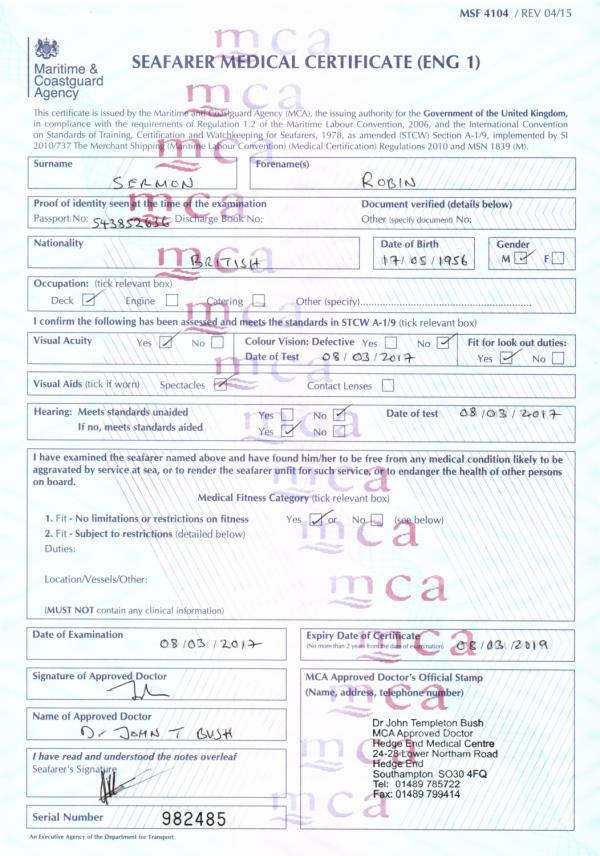 MSF 4104 / REV 04/15
mca
Maritime &
Coastguard
Agency
SEAFARER MEDICAL CERTIFICATE (ENG 1)
This certificate is issued by the Maritime and Coastguard Agency (MCA), the issuing authority for the Government of the United Kingdom,
in compliance with the requirements of Regulation 1.2 of the Maritime Labour Convention, 2006, and the International Convention
on Standards of Training, Certification and Watchkeeping for Seafarers, 1978, as amended (STCW) Section A-1/9, implemented by SI
2010/737 The Merchant Shipping (Maritime Labour Convention) (Medical Certification) Regulations 2010 and MSN 1839 (M).
Surname Forename(s)
SERMON ROBIN
Proof of identity seen at the time of the examination Document verified (details below)
Passport No: 543852636 Discharge Book No: Other (specify document) No:
Nationality Date of Birth Gender
BRITISH 17/05/1956 M F
Occupation: (tick relevant box)
Deck Engine Catering Other (specify)
I confirm the following has been assessed and meets the standards in STCW A-1/9 (tick relevant box)
Visual Acuity Yes No Colour Vision: Defective Yes No Fit for look out duties:
Date of Test 08/03/2017 Yes No
Visual Aids (tick if worn) Spectacles Contact Lenses
Hearing: Meets standards unaided Yes No Date of test 08/03/2017
If no, meets standards aided Yes No
I have examined the seafarer named above and have found him/her to be free from any medical condition likely to be
aggravated by service at sea, or to render the seafarer unfit for such service, or to endanger the health of other persons
on board.
Medical Fitness Category (tick relevant box)
1. Fit - No limitations or restrictions on fitness Yes or No (see below)
2. Fit - Subject to restrictions (detailed below)
Duties:
Location/Vessels/Other:
(MUST NOT contain any clinical information)
Date of Examination 08/03/2017
Expiry Date of Certificate 08/03/2019
(No more than 2 years from the date of examination)
Signature of Approved Doctor
Name of Approved Doctor
Dr JOHN T BUSH
I have read and understood the notes overleaf
Seafarer's Signature
Serial Number 982485
MCA Approved Doctor's Official Stamp
(Name, address, telephone number)
Dr John Templeton Bush
MCA Approved Doctor
Hedge End Medical Centre
24-28 Lower Northam Road
Hedge End
Southampton SO30 4FQ
Tel: 01489 785722
Fax: 01489 799414
An Executive Agency of the Department for Transport